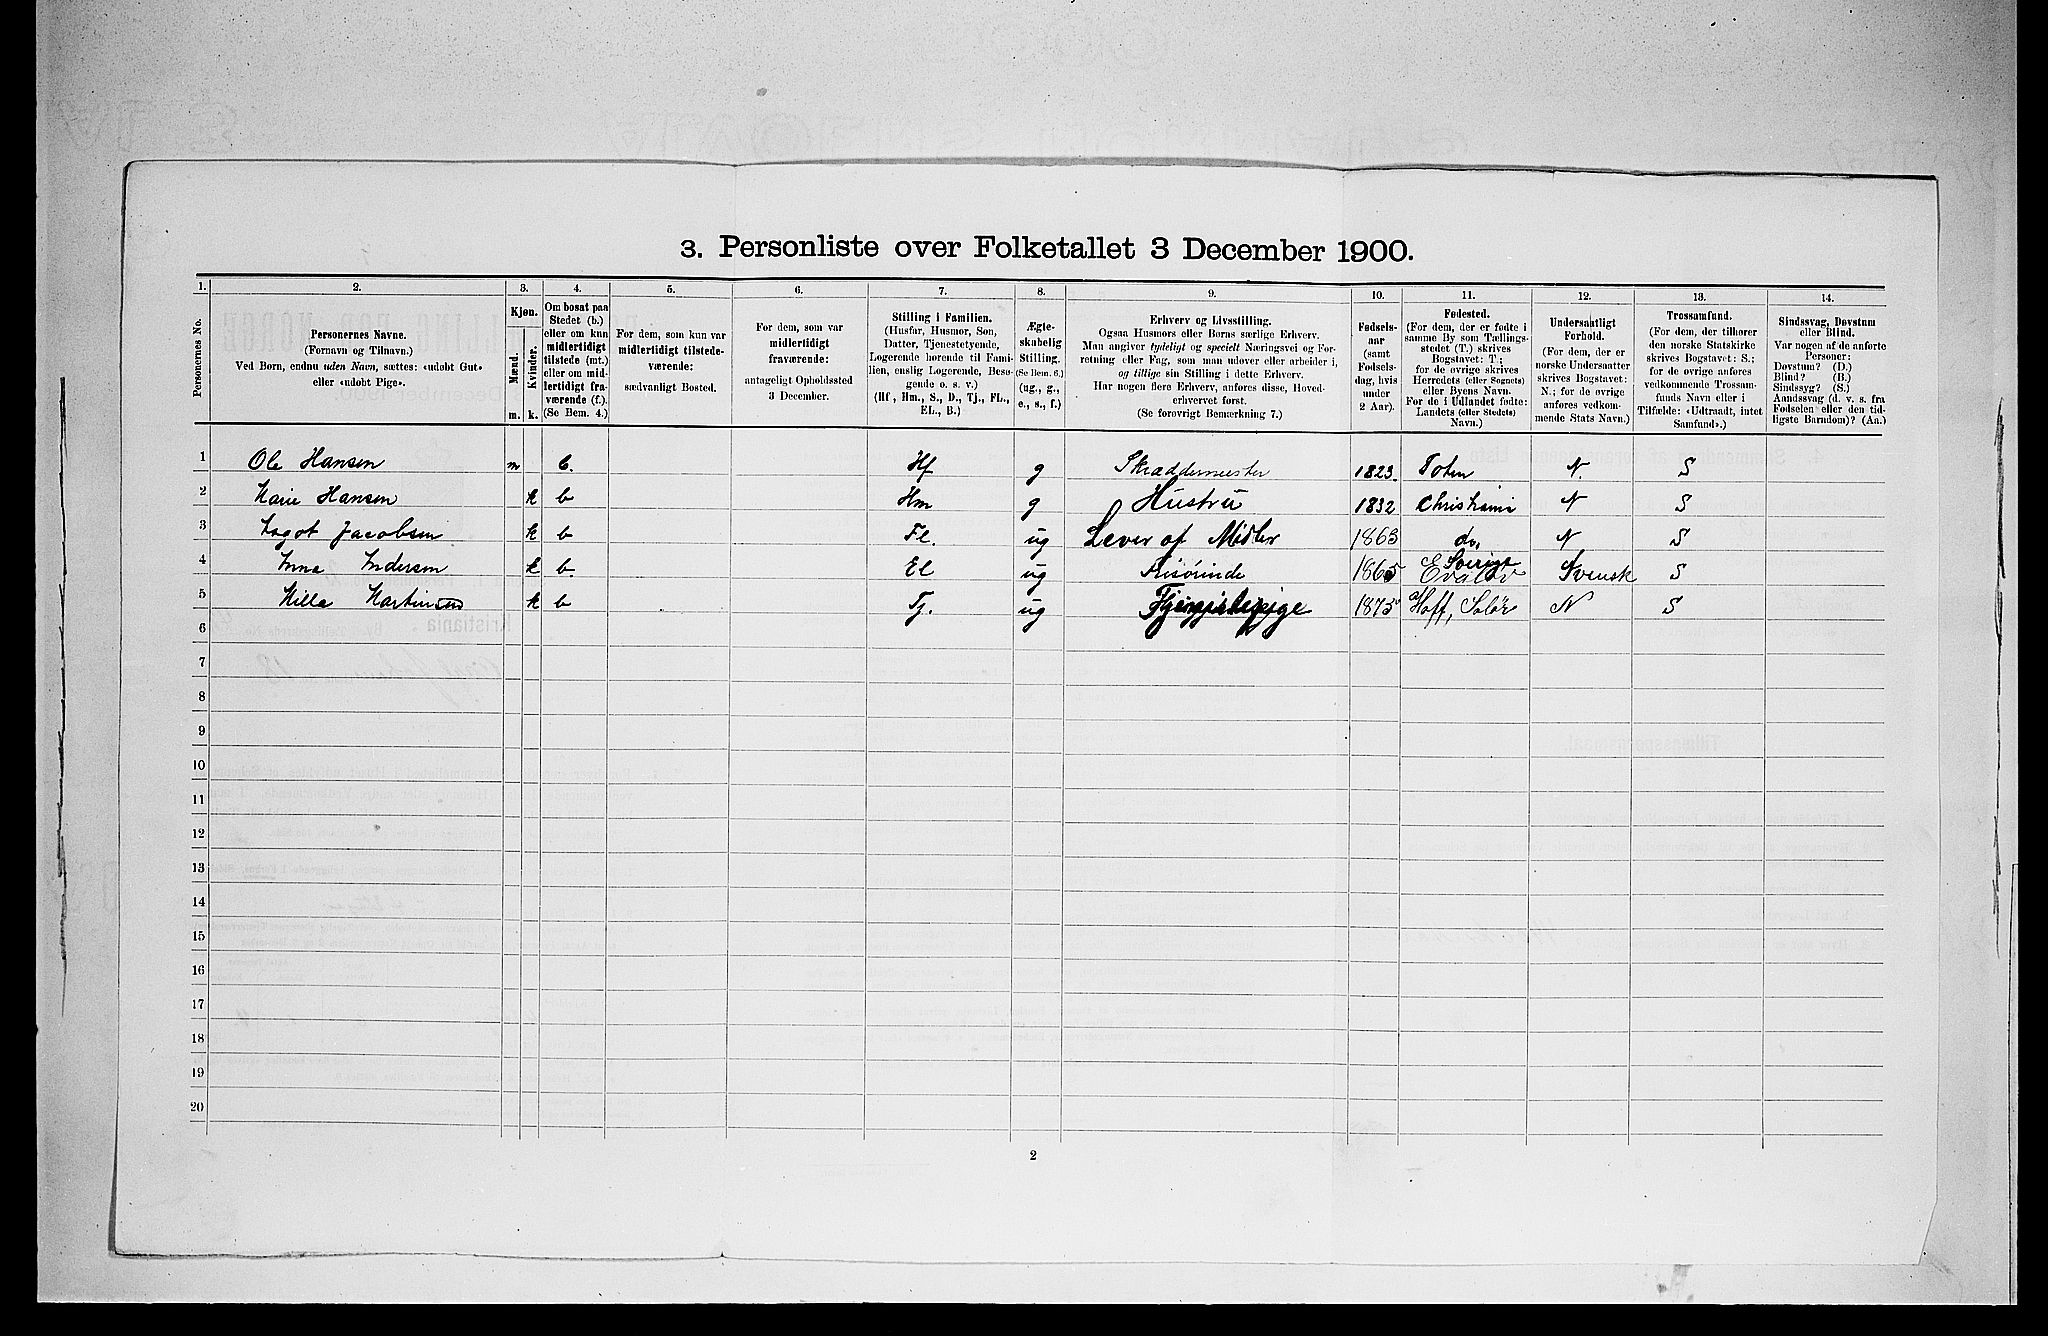 3. Personliste over Folketallet 3 December 1900.
1. 2. 3. 4. 5. 6. 7. 8. 9. 10. 11. 12. 13. 14.
Personernes No.
Personernes Navne.
(Fornavn og Tilnavn.)
Ved Børn, endnu uden Navn, sættes: «udøbt Gut»
eller «udøbt Pige».
Kjøn.
Mænd.
Kvinder.
m. k.
Om bosat paa
Stedet (b.)
eller om kun
midlertidigt
tilstede (mt.)
eller om mid-
lertidigt fra-
værende (f.).
(Se Bem. 4.)
For dem, som kun var
midlertidigt tilstede-
værende:
sædvanligt Bosted.
For dem, som var
midlertidigt
fraværende:
antageligt Opholdssted
3 December.
Stilling i Familien.
(Husfar, Husmor, Søn,
Datter, Tjenestetyende,
Logerende hørende til Fami-
lien, enslig Logerende, Besø-
gende o. s. v.)
(Hf, Hm., S., D., Tj., FL.,
EL., B.)
Ægte-
skabelig
Stilling.
(Se Bem. 6.)
(ug., g.,
e., s., f.)
Erhverv og Livsstilling.
Ogsaa Husmors eller Børns særlige Erhverv.
Man angiver tydeligt og specielt Næringsvei og For-
retning eller Fag, som man udøver eller arbeider i,
og tillige sin Stilling i dette Erhverv.
Har nogen flere Erhverv, anføres disse, Hoved-
erhvervet først.
(Se forøvrigt Bemerkning 7.)
Fødsels-
aar
(samt
Fødsels-
dag, hvis
under
2 Aar).
Fødested.
(For dem, der er fødte i
samme By som Tællings-
stedet (T.) skrives
Bogstavet: T.;
for de øvrige skrives
Herredets (eller Sognets)
eller Byens Navn.
For de i Udlandet fødte:
Landets (eller Stedets)
Navn.)
Undersaatligt
Forhold.
(For dem, der er
norske Undersaatter
skrives Bogstavet:
N.; for de øvrige
anføres vedkom-
mende Stats Navn.)
Trossamfund.
(For dem, der tilhører
den norske Statskirke
skrives Bogstavet: S.;
for de øvrige anføres
vedkommende Trossam-
funds Navn eller i
Tilfælde: «Udtraadt, intet
Samfund».)
Sindssvag, Døvstum
eller Blind.
Var nogen af de anførte
Personer:
Døvstum? (D.)
Blind? (B.)
Sindssyg? (S.)
Aandssvag (d. v. s. fra
Fødselen eller den tid-
ligste Barndom)? (Aa.)
1 Ole Hansen m b. Hf g Skræddermester 1823. Toten N. S
2 Marie Hansen k b Hm g Hustru 1832 Christiania N S
3 Jacobsen k b FL. ug Lever af Midler 1863 do. N S
4 Anna Anderson k b. EL ug Frisørinde 1865 Sverige Svensk S
5 Milla Martinsen k b Tj. ug 1873 Hoff, Solør N S
6
7
8
9
10
11
12
13
14
15
16
17
18
19
20
2